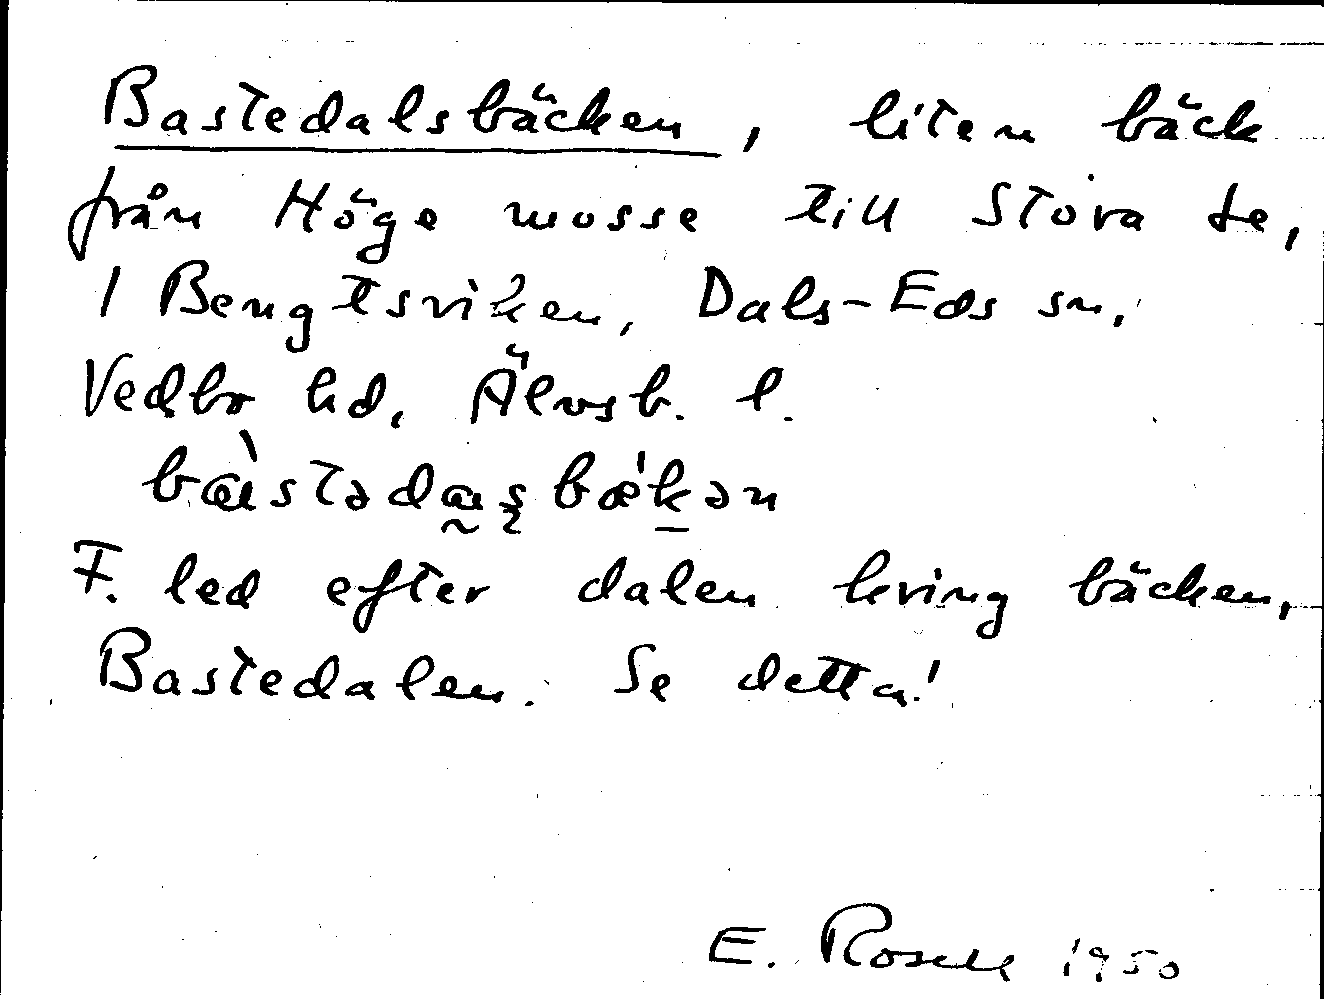 Bastedalsbäcken, liten bäck
från Höge mosse till Stora Le,
1 Bengtsviken, Dals-Eds sn.
Vedbo hd, Älvsb. l.
F. led efter dalen kring bäcken,
Bastedalen. Se detta!
E. Rosell 1950